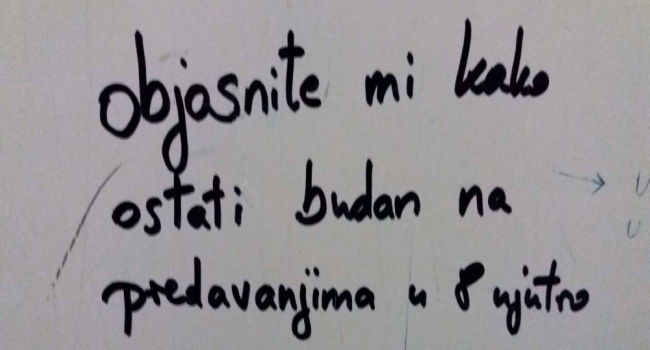 objasnite mi kako
ostati budan na
predavanjima u 8 ujutro